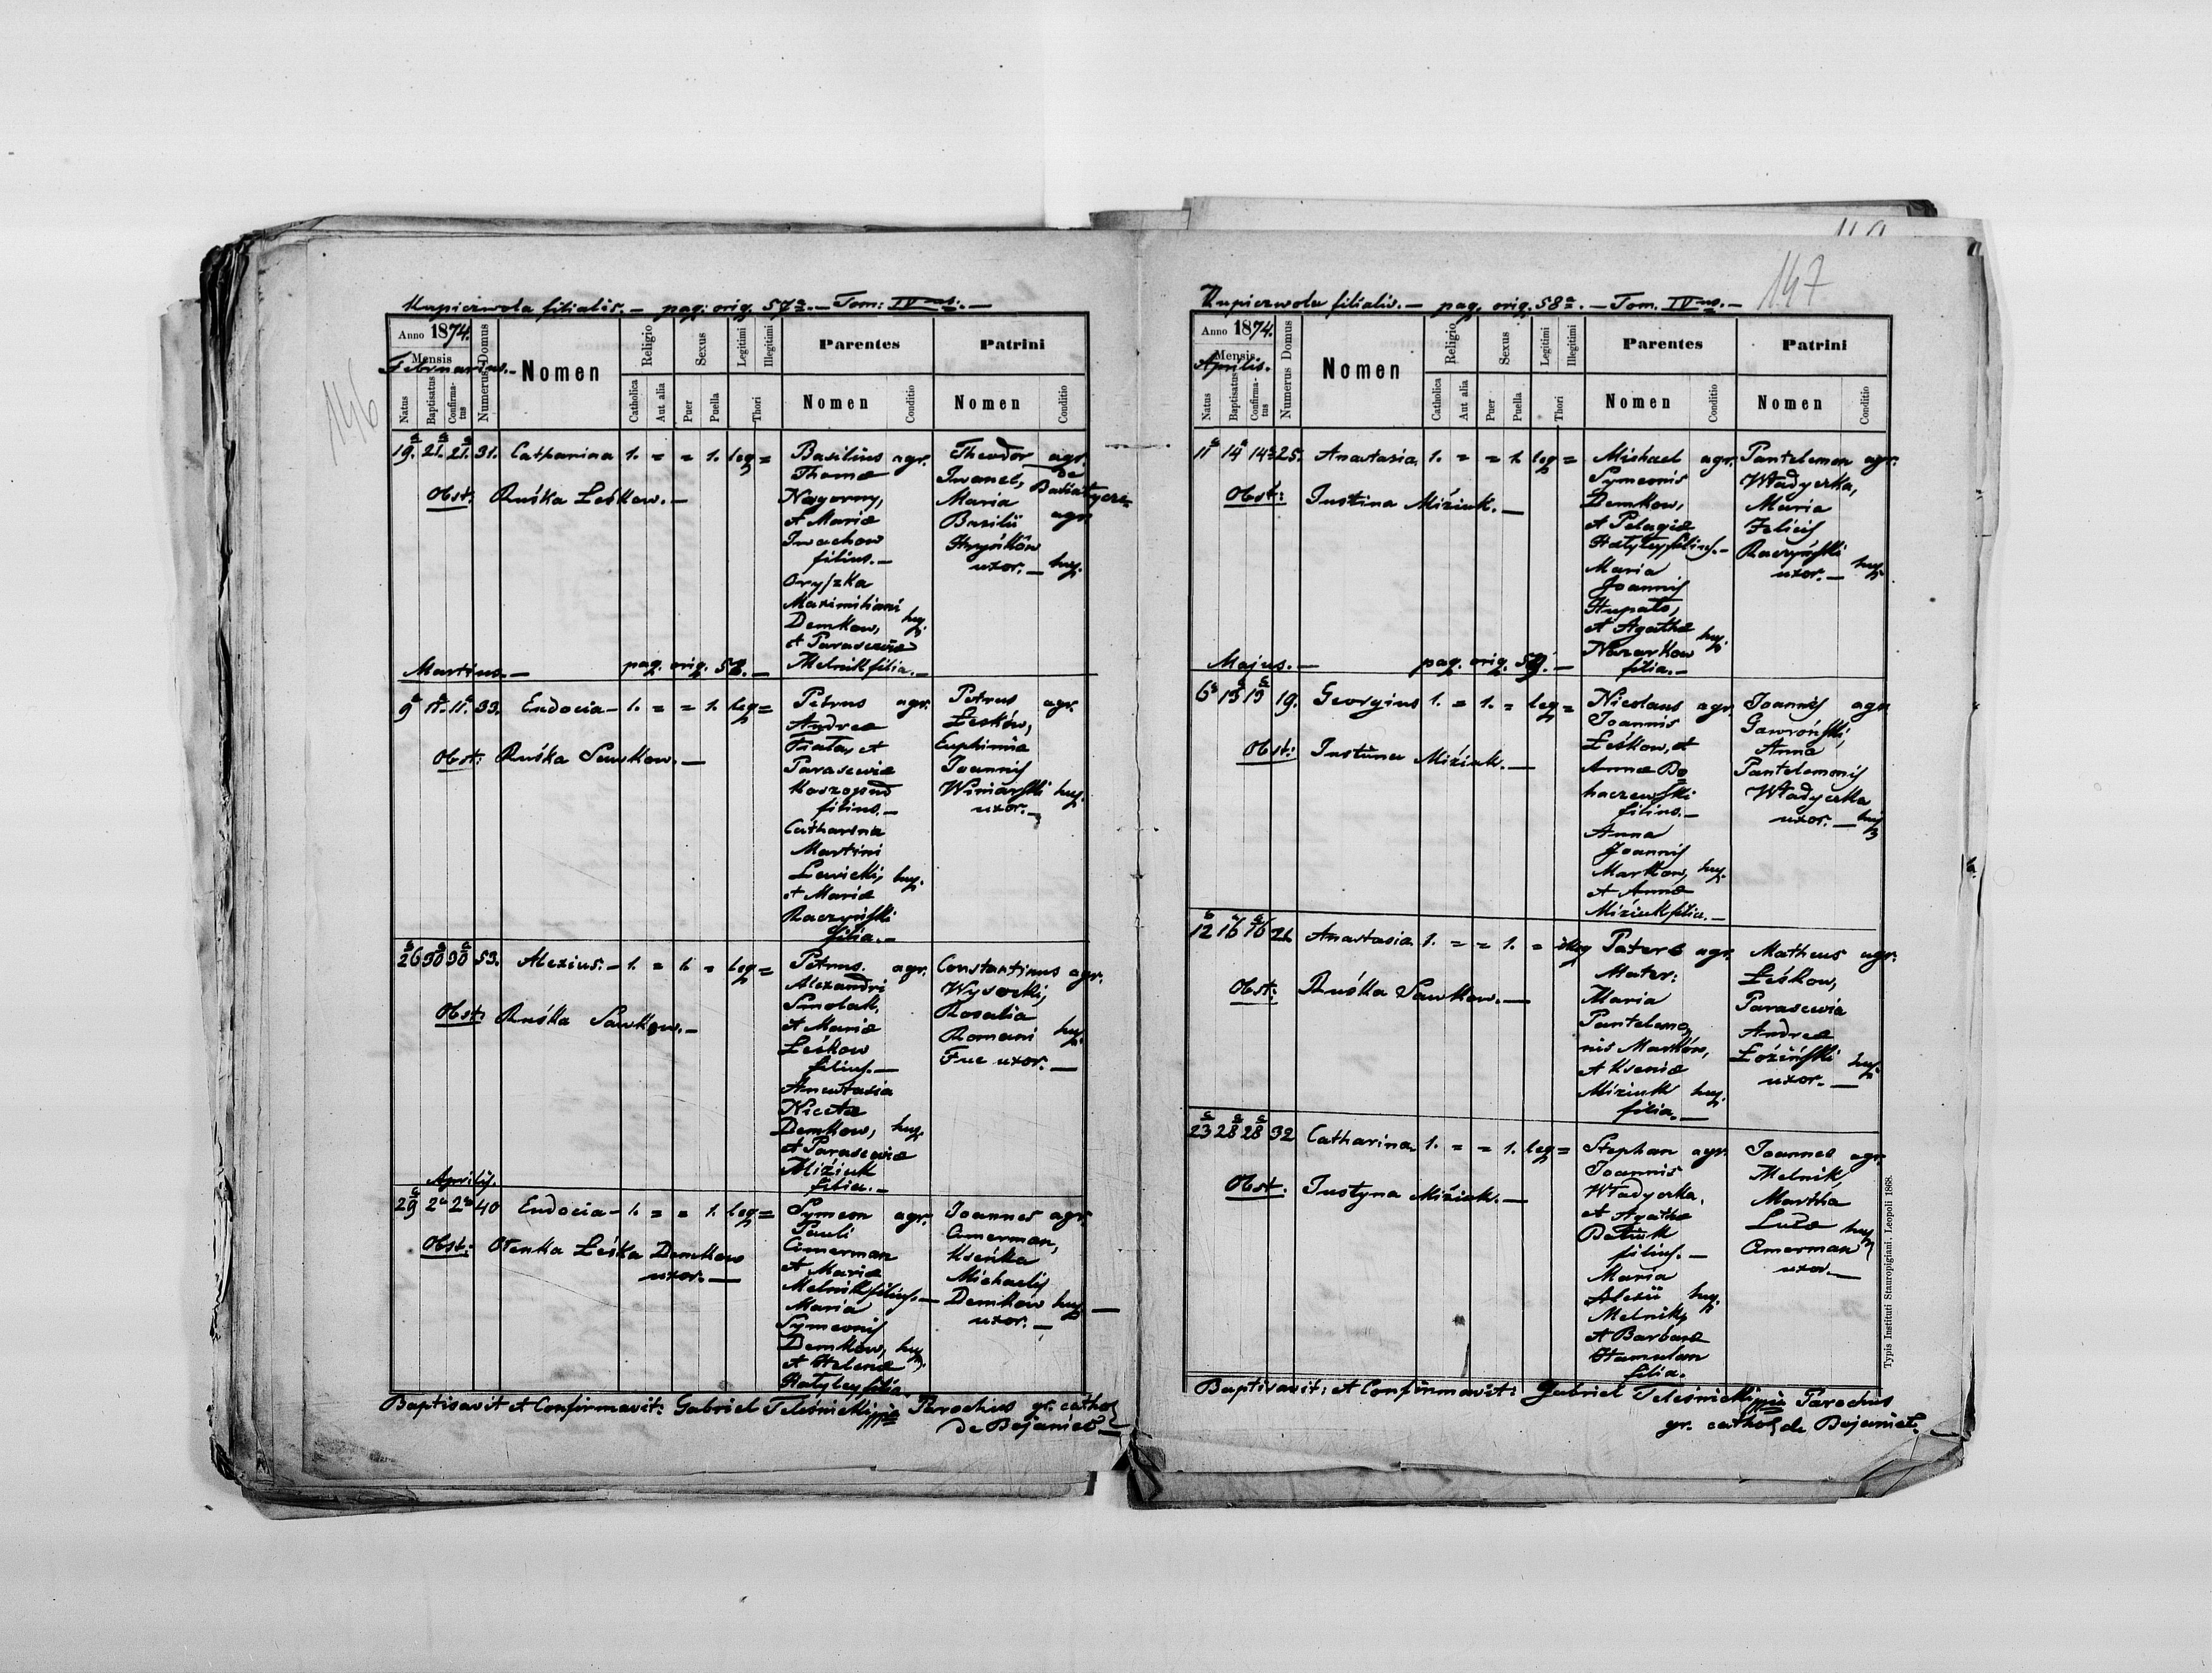 146
Kupiczwola filialis. — pag: orig. 57a. — Tom: IVus. —
Anno 1874.
Mensis
Februarius. —
Natus
Baptisatus
Confirma-
tus
Numerus Domus
Nomen
Religio
Catholica
Aut alia
Sexus
Puer
Puella
Legitimi
Illegitimi
Thori
Parentes
Nomen
Conditio
Patrini
Nomen
Conditio
19. 21. 21. 31. Catharina 1. = = 1. leg =
Obst: Ruśka Leśkow. —
Basilius agr.
Thomæ
Nagorny,
et Mariæ
Iwachow
filius. —
Oryszka
Maximiliani
Demkow, huj.
et Parasceviæ
Melnik filia. —
Theodor agr.
Iwanel, de
Maria
Basilii agr.
Hryńków
uxor. — huj.
Martius. — pag. orig. 58. —
9 11. 11. 33. Eudocia — 1. = = 1. leg =
Obst: Ruśka Sawkow. —
Petrus agr.
Andreæ
Fiałay et
Parasceviæ
filius. —
Catharina
Martini
Lewicki, huj.
et Mariæ
Raczyński
filia. —
Petrus agr.
Leśków,
Euphimia
Joannis
Winiarski huj.
uxor. —
26 30 30 53. Alexius. — 1. = 1. = leg =
Obst: Ruśka Sawkow. —
Petrus. agr.
Alexandri
Smolak,
et Mariæ
Leśkow
filius. —
Anastasia
Nicetæ
Demkow, huj.
et Parasceviæ
Miziuk
filia. —
Constantinus agr.
Wysocki,
Rosalia
Romani huj.
Fuc uxor. —
Aprilis.
29 2 2 40 Eudocia — 1. = = 1. leg =
Obst: Ołenka Leśka Demkow
uxor. —
Symeon agr.
Pauli
Cimerman
et Mariæ
Melnik filius. —
Maria
Symeonis
Demkow, huj.
et Helenæ
Hatyley filia.
Joannes agr.
Cimerman,
Kseńka
Michaelis
Demkow huj. —
uxor. —
Baptisavit et Confirmavit: Gabriel Teleśnicki mpia Parochus gr. cathol.
de Bojaniec —
147
Kupiczwola filialis. — pag. orig. 58a. — Tom. IVus. —
Anno 1874.
Mensis
Aprilis.
Natus
Baptisatus
Confirma-
tus
Numerus Domus
Nomen
Religio
Catholica
Aut alia
Sexus
Puer
Puella
Legitimi
Illegitimi
Thori
Parentes
Nomen
Conditio
Patrini
Nomen
Conditio
11 14 14 25. Anastasia 1. = = 1. leg =
Obst: Iustina Miziuk. —
Michael agr.
Symeonis
Demkow,
et Pelagiæ
Hatyley filius. —
Maria
Joannis
Hupało,
et Agathæ huj.
Nazarkow
filia. —
Pantelemon agr.
Władyczka,
Maria
Felicis
Raczyński
uxor. — huj.
Majus. — pag. orig. 59. —
6 13 13 19. Georgius 1. = 1. = leg =
Obst: Iustina Miziuk. —
Nicolaus agr.
Joannis
Leśkow, et
Annæ Bo=
haczewski
filius. —
Anna
Joannis
Markow, huj.
et Annæ
Miziuk filia. —
Joannes agr.
Gawroński,
Anna
Pantelemonis
Władyczka
uxor. — huj.
12 16 16 21. Anastasia 1. = = 1. = illeg
Obst: Ruśka Sawkow. —
Pater agr.
Mater:
Maria
Pantelemo,
nis Marków,
et Kseniæ
Miziuk huj.
filia. —
Matheus agr.
Leśkow,
Parascevia
Andreæ
Łoziński huj.
uxor. —
23 28 28 32 Catharina 1. = = 1. leg =
Obst: Iustyna Miziuk. —
Stephan agr.
Joannis
Władyczka,
et Agathæ
filius. —
Maria
Alexii huj.
Melnik,
et Barbaræ
filia.
Joannes agr.
Melnik,
Martha
Lucæ huj.
Cimerman
uxor. —
Baptisavit: et Confirmavit: Gabriel Teleśnicki mpia Parochus
gr. cathol. de Bojaniec.
Typis Instituti Stauropigiani. Leopoli 1868.